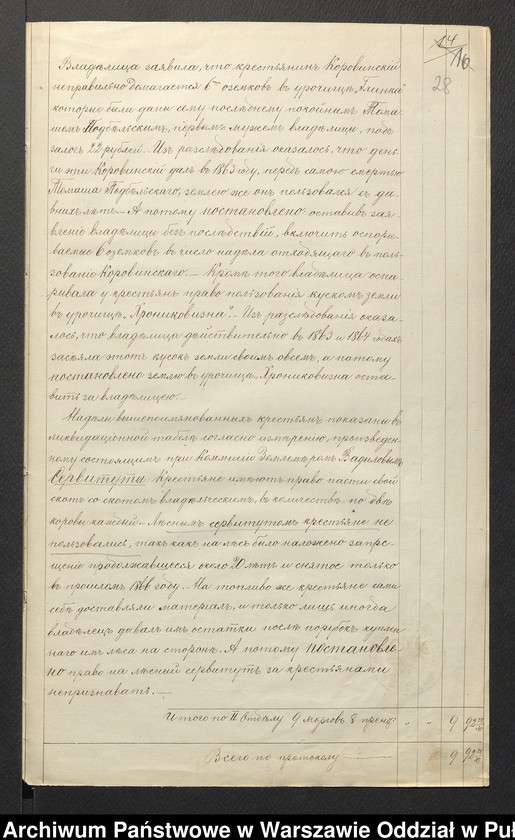 14
16
28
Владѣлица заявила, что крестьянинъ Коровинскій
неправильно домагается 6ти оземковъ въ урочищѣ „Глинка“
которые были даны сему послѣднему покойнымъ Тома-
шемъ Подбѣльскимъ, первымъ мужемъ владѣлицы, подъ
залогъ 22 рублей. Изъ разслѣдованія оказалось, что день-
ги эти Коровинскій далъ въ 1863 году, передъ самою смертью
Томаша Подбѣльскаго, землею же онъ пользовался съ да-
внихъ лѣтъ. – А потому постановлено оставивъ зая-
вленіе владѣлицы безъ послѣдствій, включить оспори-
ваемые 6 оземковъ въ число надѣла отходящаго въ поль-
зованіе Коровинскаго. – Кромѣ того владѣлица оспа-
ривала у крестьянъ право пользованія кускомъ земли
въ урочищѣ „Хрониковизна“. – Изъ разслѣдованія оказа-
лось, что владѣлица дѣйствительно въ 1863 и 1864 годахъ
засѣяла этотъ кусокъ земли своимъ овсомъ, а потому
постановлено землю въ урочищѣ „Хрониковизна оста-
вить за владѣлицею. –
Надѣлы вышепоимянованныхъ крестьянъ показаны въ
ликвидаціонной табели согласно измѣренію, произведен-
ному состоящимъ при Коммисіи Землемѣромъ
Сервитуты: Крестьяне имѣютъ право пасти свой
скотъ со скотомъ владѣльческимъ, въ количествѣ по двѣ
коровы каждый. – Лѣснымъ сервитутомъ крестьяне не
пользовались, такъ какъ на лѣсъ было наложено запре-
щеніе продолжавшееся около 20 лѣтъ и снятое только
въ прошломъ 1866 году. – На топливо же крестьяне сами
себѣ доставляли матеріалъ, и только лишь иногда
владѣлецъ давалъ имъ остатки послѣ порубокъ куплен-
наго имъ лѣса на сторонѣ. А потому постановле-
но право на лѣсный сервитутъ за крестьянами
непризнавать. –
Итого по II Отдѣлу 9 морговъ 8 прент. „ „ 9
Всего по протоколу 9
Archiwum Państwowe w Warszawie Oddział w Puł